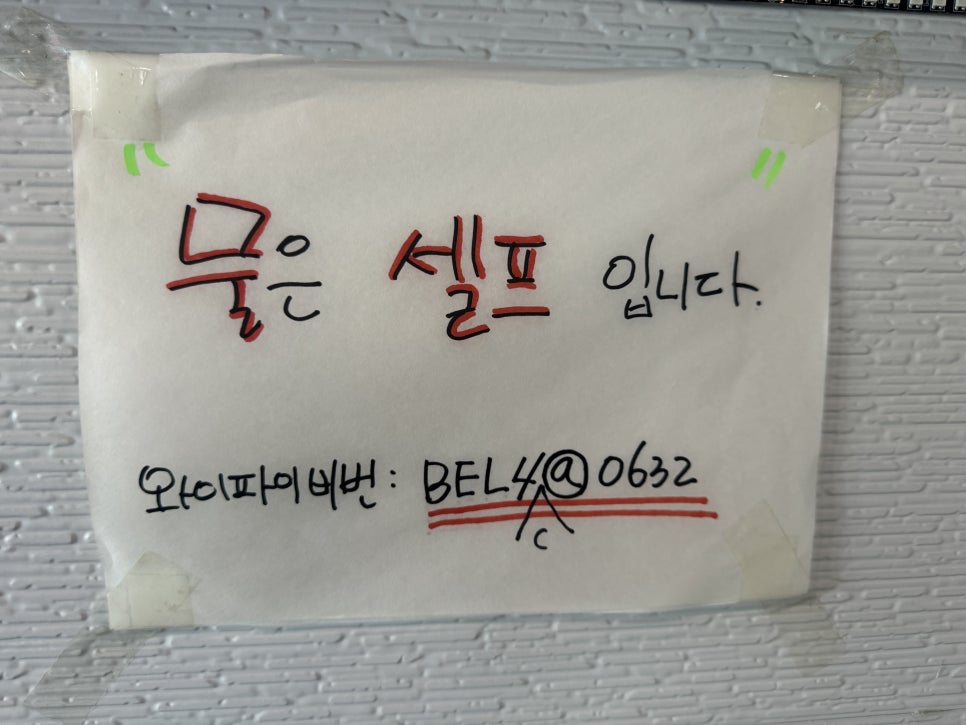 "물은 셀프 입니다."
와이파이비번: BEL4@0632
c